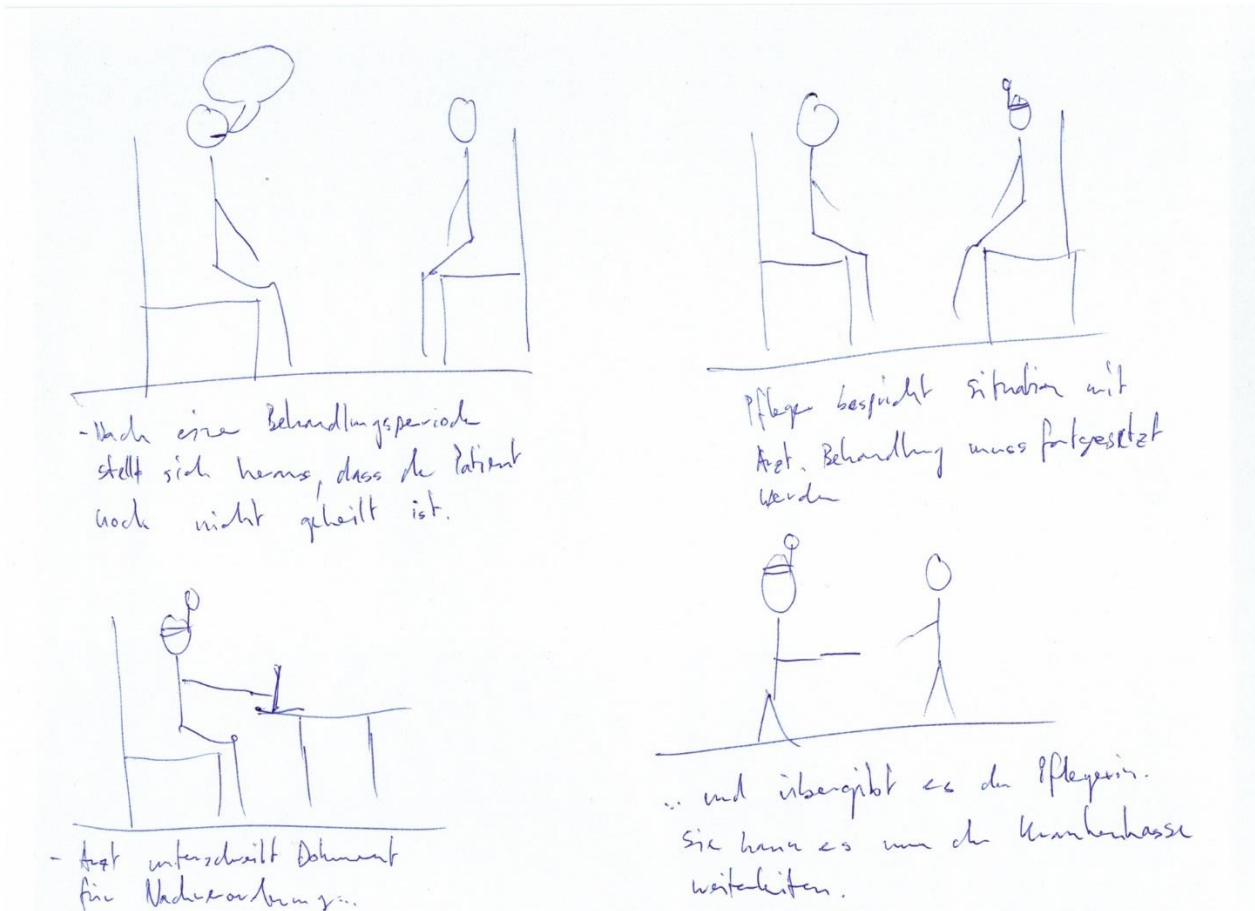 - Nach einer Behandlungsperiode
stellt sich heraus, dass der Patient
noch nicht geheilt ist.
Pfleger bespricht situation mit
Arzt. Behandlung muss fortgesetzt
werden
- Arzt unterschreibt Dokument
für Nachverordnung...
... und übergibt es der Pflegerin.
sie kann es nun der Krankenkasse
weiterleiten.